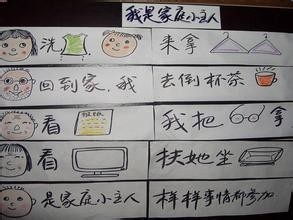 我是家庭小主人
洗 来拿
回到家，我 去倒杯茶
看 我把 拿
看 扶她坐
是家庭小主人 样样事情都参加